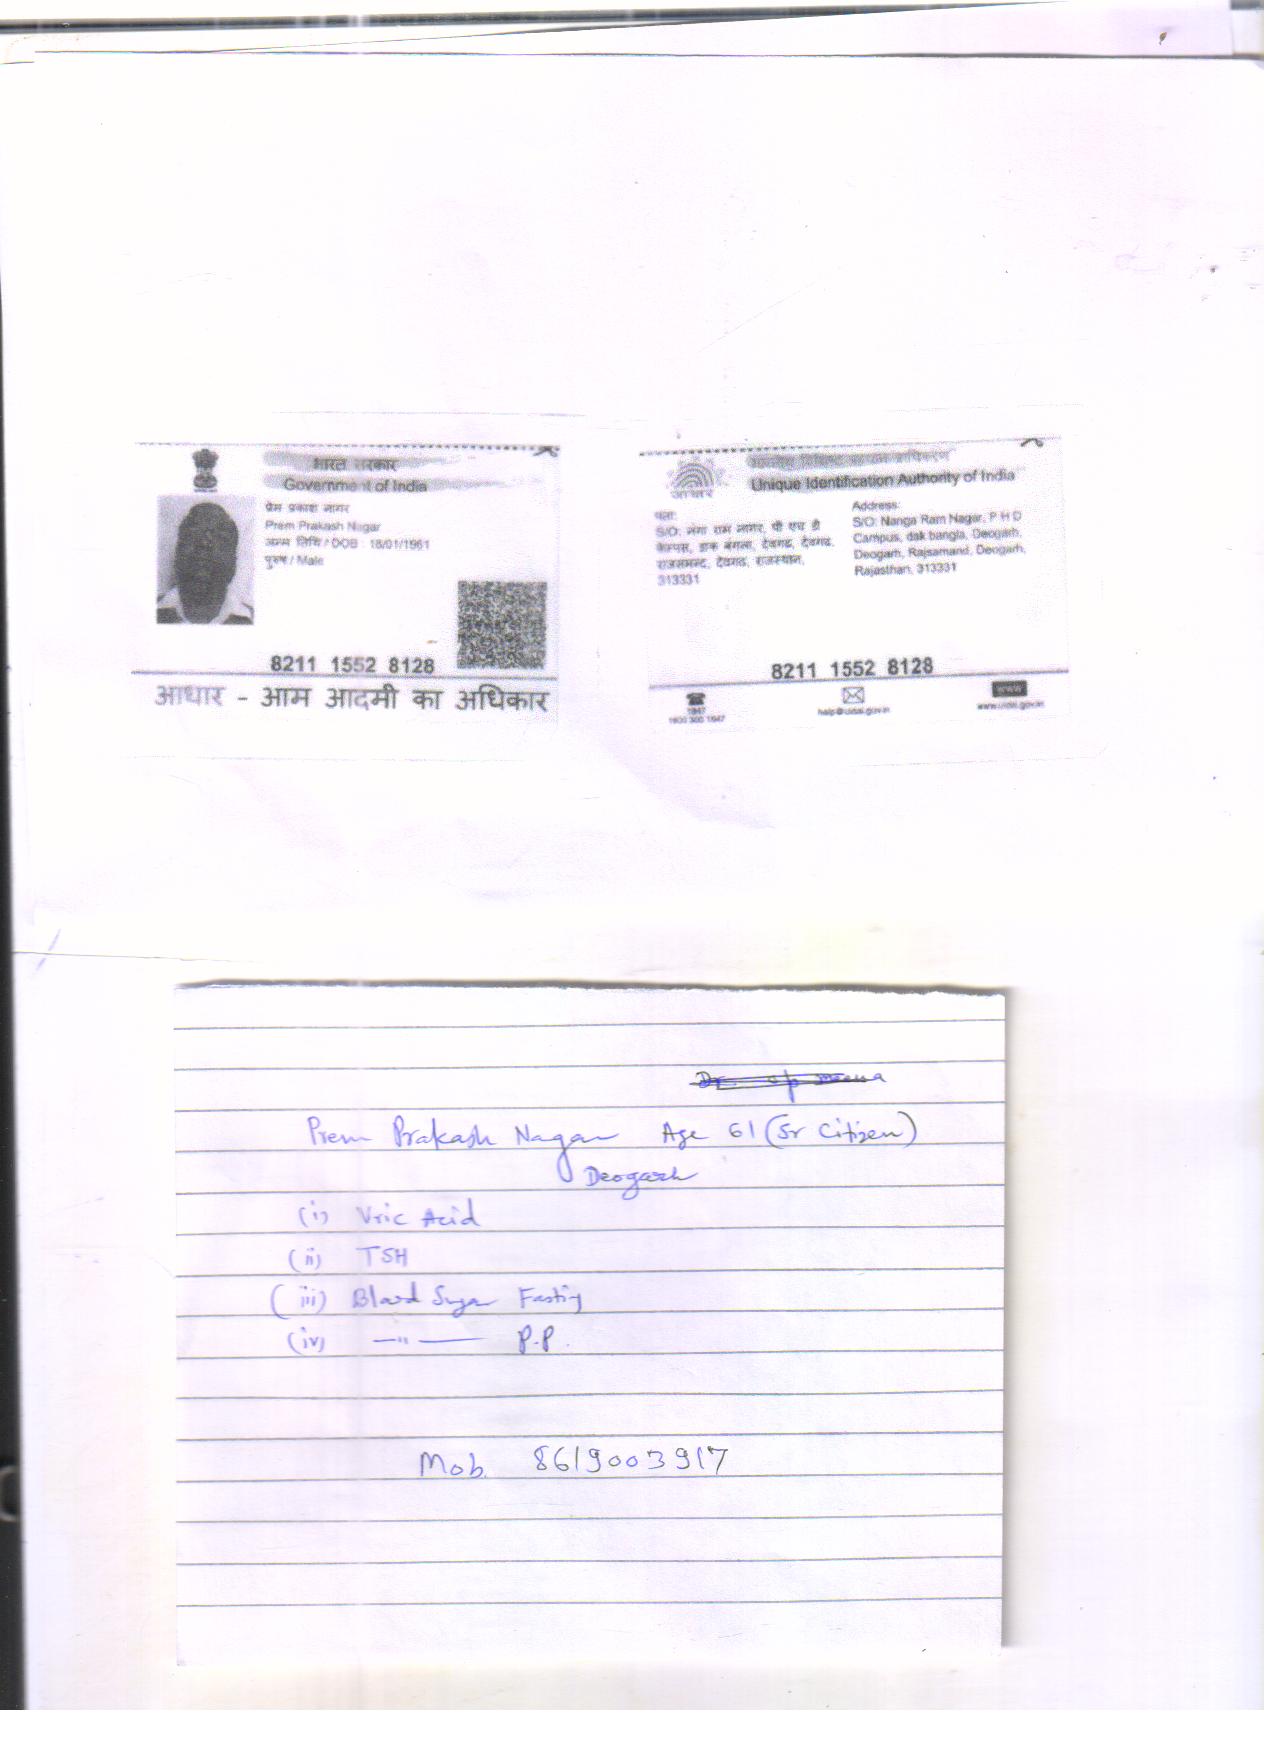 भारत सरकार
Government of India
प्रेम प्रकाश नागर
Prem Prakash Nagar
जन्म तिथि / DOB : 18/01/1961
पुरुष / Male
8211 1552 8128
आधार - आम आदमी का अधिकार
Unique Identification Authority of India
आधार
पता:
S/O: नंगा राम नागर, पी एच डी
केम्पस, डाक बंगला, देवगढ, देवगढ,
राजसमन्द, देवगढ, राजस्थान,
313331
Address:
S/O: Nanga Ram Nagar, P H D
Campus, dak bangla, Deogarh,
Deogarh, Rajsamand, Deogarh,
Rajasthan, 313331
8211 1552 8128
1947
1800 300 1947
help@uidai.gov.in
www
www.uidai.gov.in
Dr. op meena
Prem Prakash Nagar Age 61 (Sr Citizen)
Deogarh
(i) Uric Acid
(ii) TSH
(iii) Blood Sugar Fasting
(iv) —"— P.P.
Mob. 8619003917